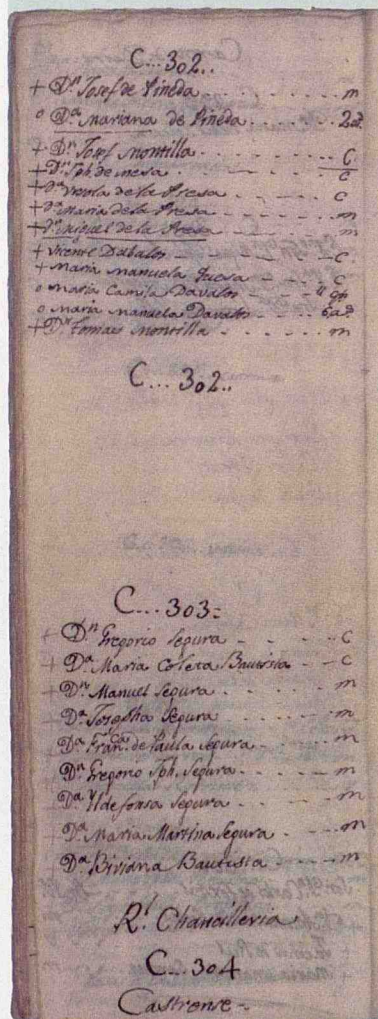 C...302..
+ Dn. Josef de Pineda - - - m
o Da. Mariana de Pineda - 2ad.
+ Dn. Josef Montilla - - - - C
+ Dn. Jph. de mesa - - - - c
+ Da. Vicola de la Presa - - - c
+ Da. Maria de la Presa - - - m
+ Dn. Miguel de la Presa - - - m
+ Vicente Dabalos - - - - C
+ Maria Manuela - - - C
o Maria Camila Davalos - - - 4
o Maria Manuela Davalos - - - 6ad.
+ Dn. Tomas Montilla - - - - m
C...302..
C...303=
+ Dn. Gregorio Segura - - - - C
+ Da. Maria Coleta Bautista - - C
+ Dn. Manuel Segura - - - - m
+ Da. Josepha Segura - - - - m
Da. Franca. de Paula Segura - - m
Dn. Gregorio Jph. Segura - - - m
Da. Yldefonsa Segura - - - - m
+ Da. Maria Martina Segura - - - m
+ Da. Biviana Bautista - - - m
Rl. Chancilleria
C...304
Castrense -